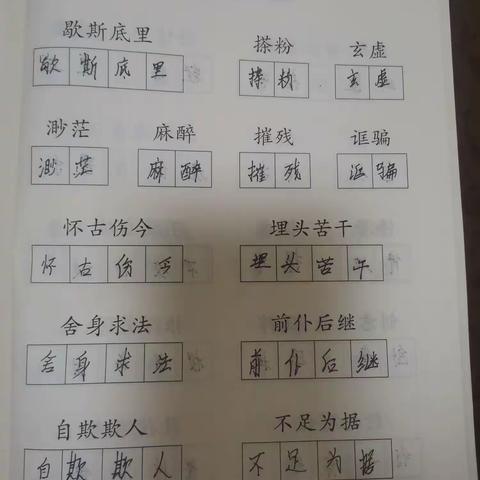 歇斯底里 搽粉 玄虚
歇斯底里 搽粉 玄虚
渺茫 麻醉 摧残 诓骗
渺茫 麻醉 摧残 诓骗
怀古伤今 埋头苦干
怀古伤今 埋头苦干
舍身求法 前仆后继
舍身求法 前仆后继
自欺欺人 不足为据
自欺欺人 不足为据